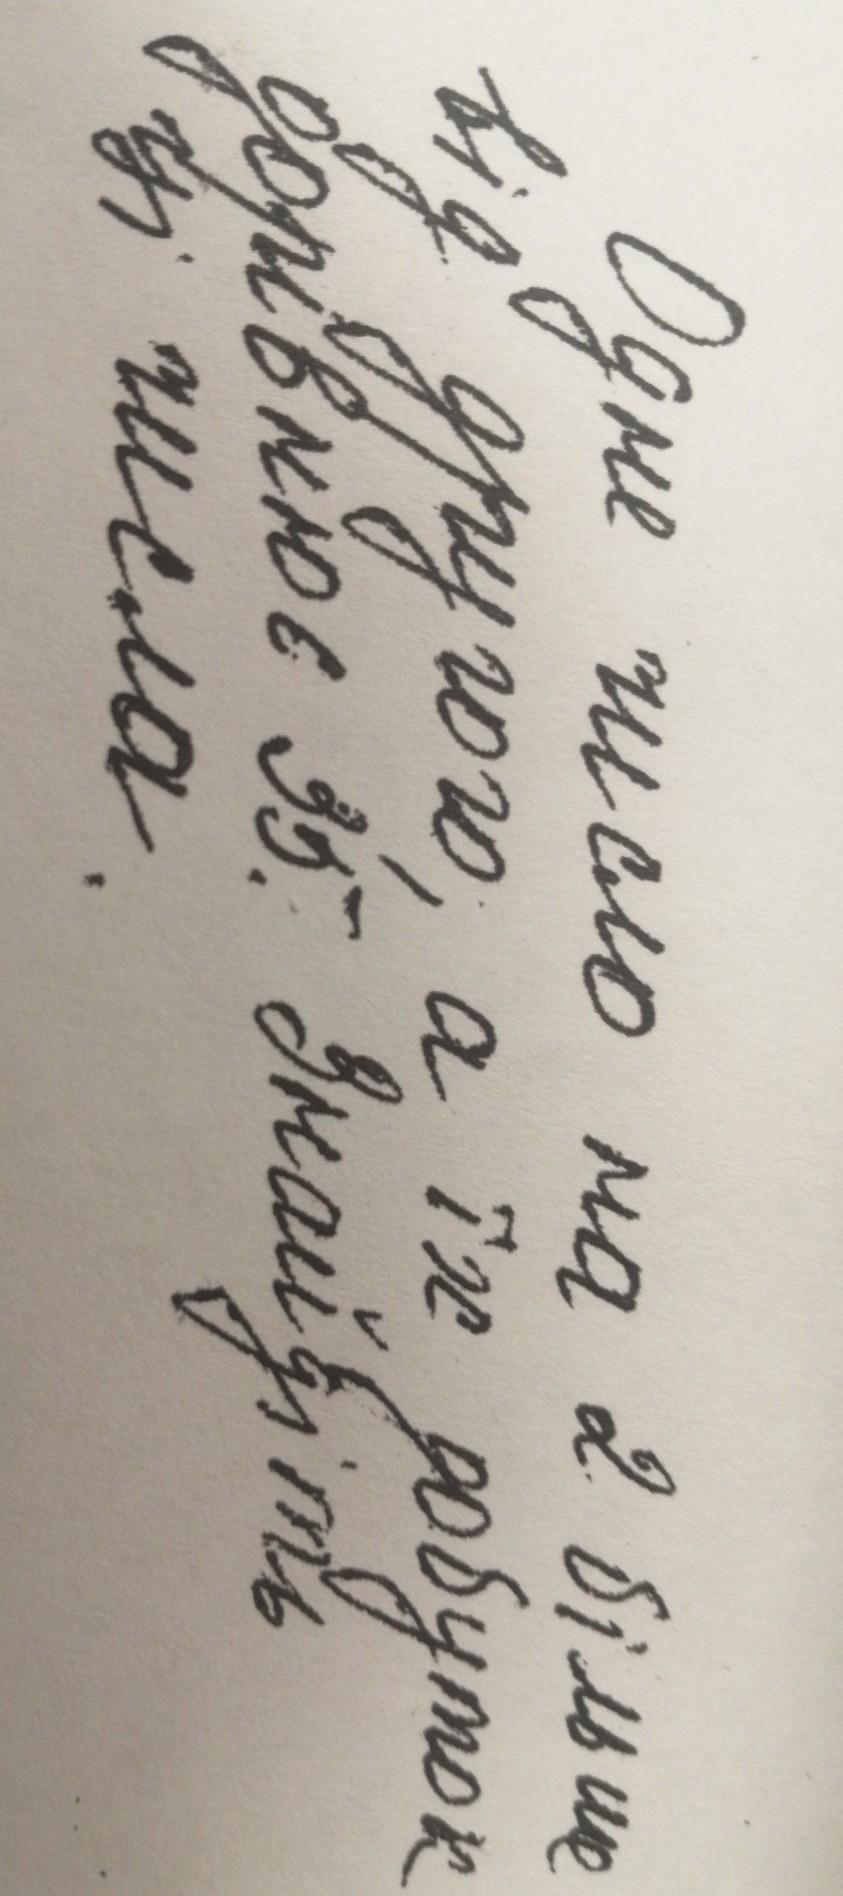 Одне число на 2 більше
від другого, а їх добуток
дорівнює 35. Знайдіть
ці числа.